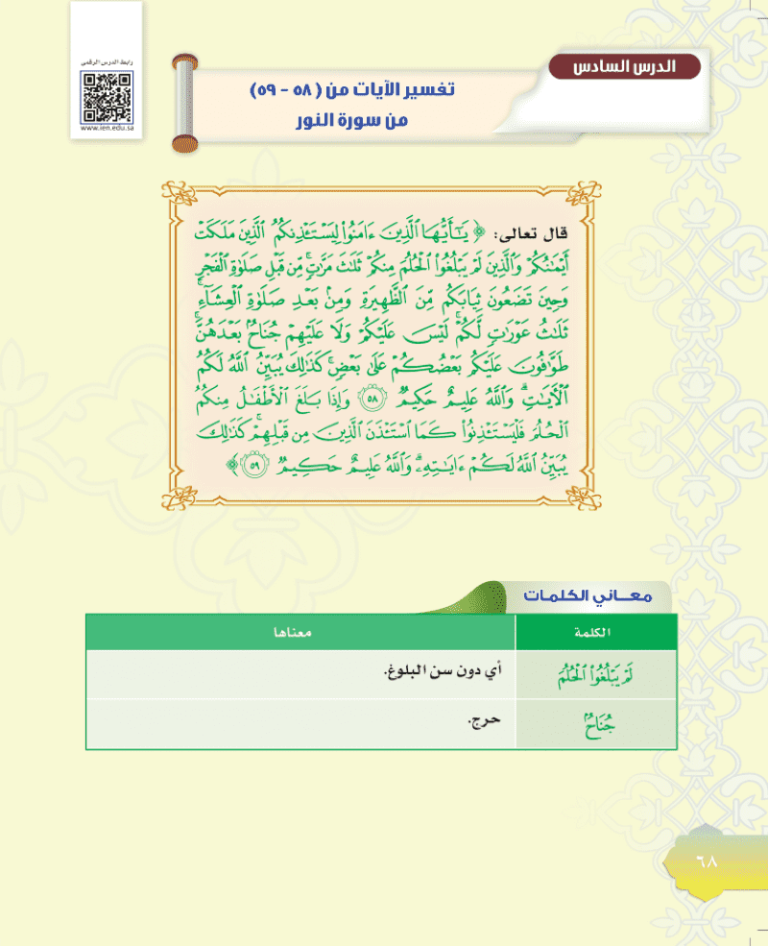 رابط الدرس الرقمي
www.ien.edu.sa
الدرس السادس
تفسير الآيات من (٥٨ - ٥٩)
من سورة النور
قال تعالى: ﴿ يَـٰٓأَيُّهَا ٱلَّذِينَ ءَامَنُوا۟ لِيَسْتَـْٔذِنكُمُ ٱلَّذِينَ مَلَكَتْ
أَيْمَـٰنُكُمْ وَٱلَّذِينَ لَمْ يَبْلُغُوا۟ ٱلْحُلُمَ مِنكُمْ ثَلَـٰثَ مَرَّٰتٍ ۚ مِّن قَبْلِ صَلَوٰةِ ٱلْفَجْرِ
وَحِينَ تَضَعُونَ ثِيَابَكُم مِّنَ ٱلظَّهِيرَةِ وَمِنۢ بَعْدِ صَلَوٰةِ ٱلْعِشَآءِ ۚ
ثَلَـٰثُ عَوْرَٰتٍ لَّكُمْ ۚ لَيْسَ عَلَيْكُمْ وَلَا عَلَيْهِمْ جُنَاحٌۢ بَعْدَهُنَّ ۚ
طَوَّٰفُونَ عَلَيْكُم بَعْضُكُمْ عَلَىٰ بَعْضٍ ۚ كَذَٰلِكَ يُبَيِّنُ ٱللَّهُ لَكُمُ
ٱلْـَٔايَـٰتِ ۗ وَٱللَّهُ عَلِيمٌ حَكِيمٌ ٥٨ وَإِذَا بَلَغَ ٱلْأَطْفَـٰلُ مِنكُمُ
ٱلْحُلُمَ فَلْيَسْتَـْٔذِنُوا۟ كَمَا ٱسْتَـْٔذَنَ ٱلَّذِينَ مِن قَبْلِهِمْ ۚ كَذَٰلِكَ
يُبَيِّنُ ٱللَّهُ لَكُمْ ءَايَـٰتِهِۦ ۗ وَٱللَّهُ عَلِيمٌ حَكِيمٌ ٥٩ ﴾
معـــاني الكلمات
الكلمة معناها
لَمْ يَبْلُغُوا۟ ٱلْحُلُمَ أي دون سن البلوغ.
جُنَاحٌۢ حرج.
٦٨